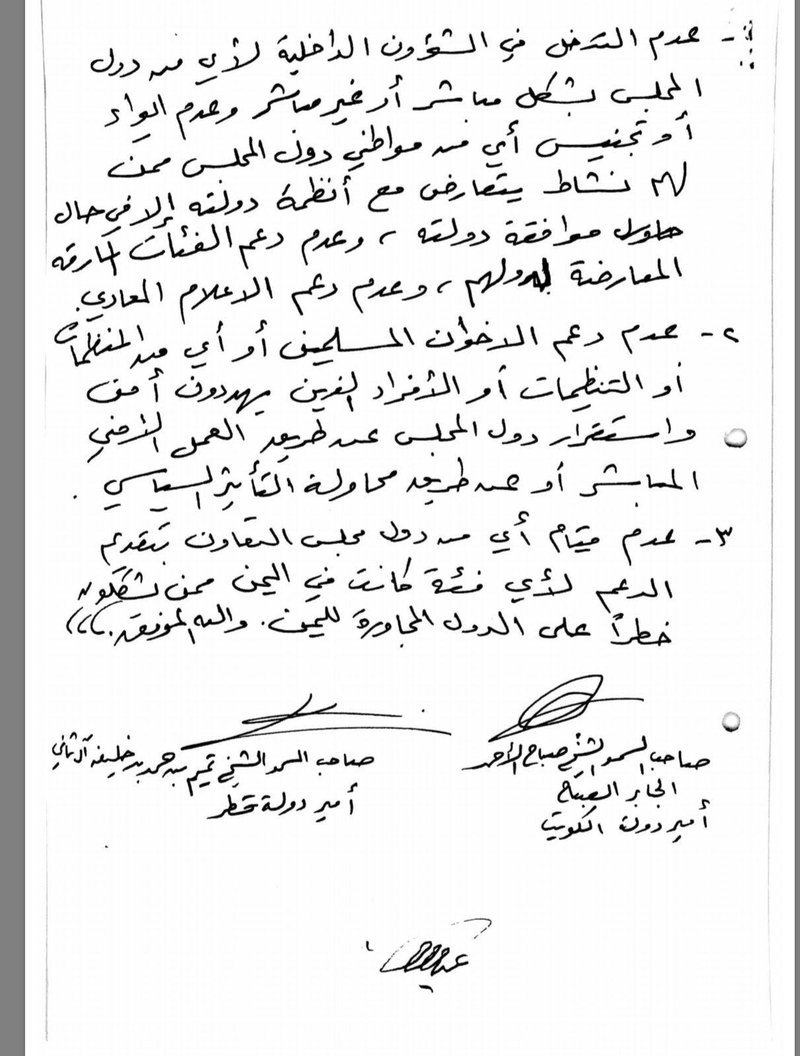 ١- عدم التدخل في الشؤون الداخلية لأي من دول
المجلس بشكل مباشر أو غير مباشر وعدم ايواء
أو تجنيس أي من مواطني دول المجلس ممن
لهم نشاط يتعارض مع أنظمة دولته إلا في حال
موافقة دولته، وعدم دعم الفئات المارقه
المعارضة لدولهم، وعدم دعم الاعلام المعادي.
٢- عدم دعم الاخوان المسلمين أو أي من المنظمات
أو التنظيمات أو الأفراد الذين يهددون أمن
واستقرار دول المجلس عن طريق العمل الأمني
المباشر أو عن طريق محاولة التأثير السياسي.
٣- عدم قيام أي من دول مجلس التعاون بتقديم
الدعم لأي فئة كانت في اليمن ممن يشكلون
خطراً على الدول المجاورة لليمن. والله الموفق،،،
صاحب السمو الشيخ صباح الأحمد
الجابر الصباح
أمير دولة الكويت
صاحب السمو الشيخ تميم بن حمد بن خليفه آل ثاني
أمير دولة قطر